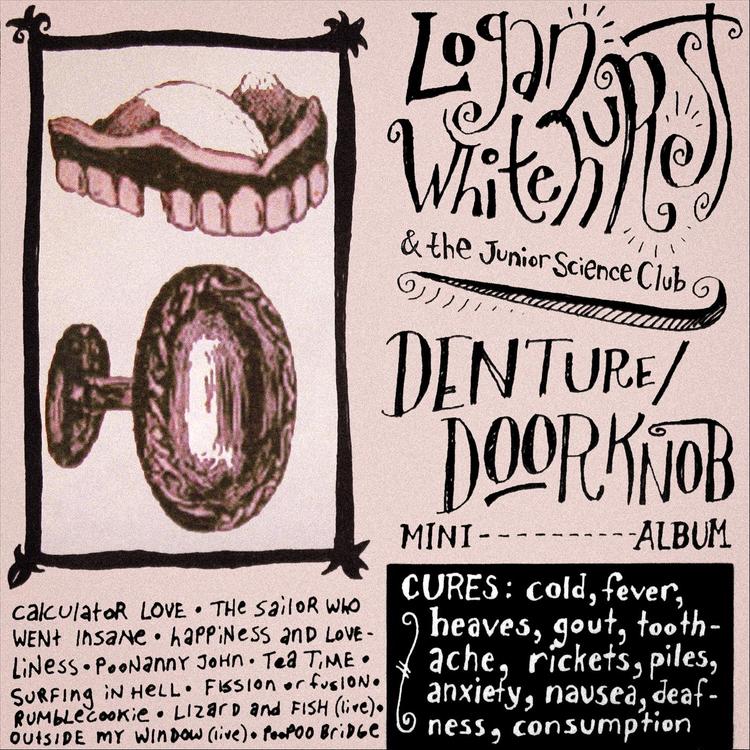 Logan
Whitehurst
& the Junior Science Club
DENTURE/
DOORKNOB
MINI----------ALBUM
CURES: cold, fever,
heaves, gout, tooth-
ache, rickets, piles,
anxiety, nausea, deaf-
ness, consumption
CalCUlatoR LOVE • THe SailoR WHO
WENt Insane • HaPPiNess and LOVE-
LiNess • PooNanny JOHN • Tea TiME •
SURFing iN HELL • Fission or fusion •
RUMBLecookie • LIZARD and FISH (live) •
OUtSIDE MY WiNDOW (live) • PooPOO BRiDGe